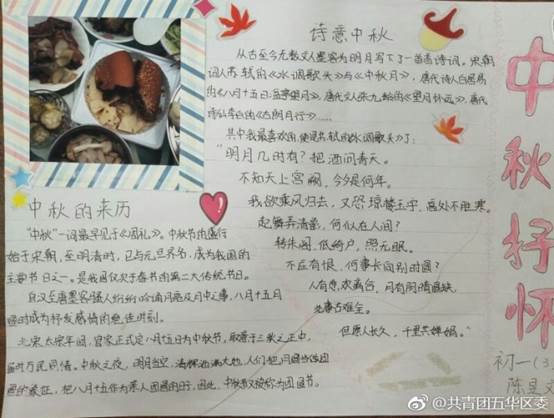 诗意中秋
从古至今无数文人墨客为明月写下了一首首诗词。宋朝
词人苏轼的《水调歌头》与《中秋月》，唐代诗人白居易
的《八月十五日湓亭望月》，唐代文人张九龄的《望月怀远》，唐代
诗仙李白的《古朗月行》……
其中我最喜欢的便是苏轼的水调歌头了：
"明月几时有？把酒问青天。
不知天上宫阙，今夕是何年。
我欲乘风归去，又恐琼楼玉宇，高处不胜寒。
起舞弄清影，何似在人间？
转朱阁，低绮户，照无眠。
不应有恨，何事长向别时圆？
人有悲欢离合，月有阴晴圆缺，
此事古难全。
但愿人长久，千里共婵娟。"
中秋的来历
"中秋"一词最早见于《周礼》。中秋节的盛行
始于宋朝，至明清时，已与元旦齐名，成为我国的
主要节日之一。是我国仅次于春节的第二大传统节日。
自汉至唐墨客骚人纷纷吟咏月亮及月中之事，八月十五月
圆时成为抒发感情的绝佳时刻。
北宋太宗年间，官家正式定八月十五日为中秋节，取意于三秋之正中，
届时万民同庆。中秋之夜，明月当空，清辉洒满大地，人们把月圆当作团
圆的象征，把八月十五作为亲人团圆的日子，因此，中秋节又被称为团圆节。
中秋抒怀
初一(3)
陈昱
@共青团五华区委